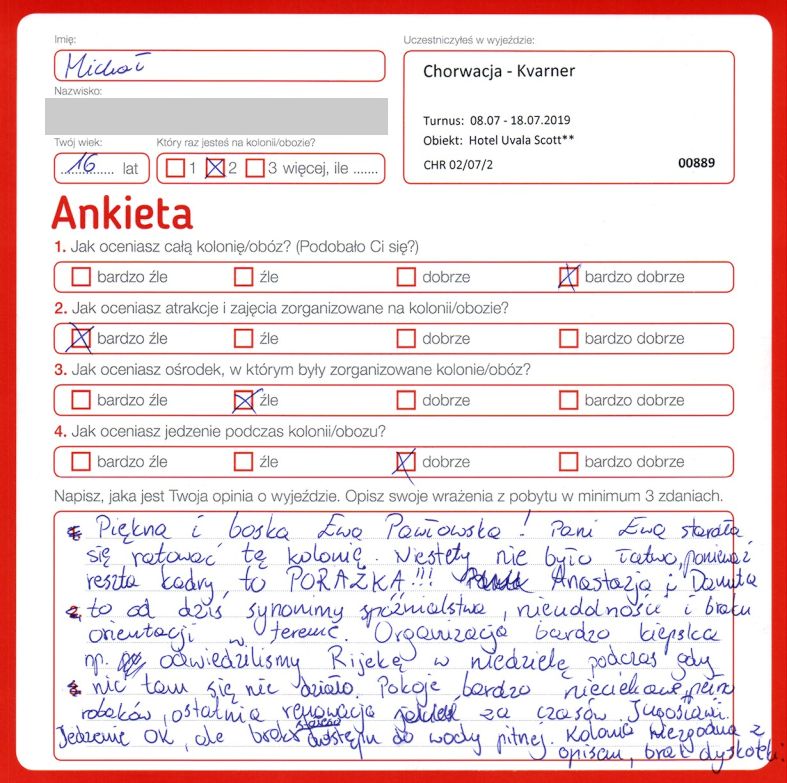 Imię:
Michał
Nazwisko:
Twój wiek:
16 lat
Który raz jesteś na kolonii/obozie?
1 2 3 więcej, ile .......
Uczestniczyłeś w wyjeździe:
Chorwacja - Kvarner
Turnus: 08.07 - 18.07.2019
Obiekt: Hotel Uvala Scott**
CHR 02/07/2 00889
Ankieta
1. Jak oceniasz całą kolonię/obóz? (Podobało Ci się?)
bardzo źle źle dobrze bardzo dobrze
2. Jak oceniasz atrakcje i zajęcia zorganizowane na kolonii/obozie?
bardzo źle źle dobrze bardzo dobrze
3. Jak oceniasz ośrodek, w którym były zorganizowane kolonie/obóz?
bardzo źle źle dobrze bardzo dobrze
4. Jak oceniasz jedzenie podczas kolonii/obozu?
bardzo źle źle dobrze bardzo dobrze
Napisz, jaka jest Twoja opinia o wyjeździe. Opisz swoje wrażenia z pobytu w minimum 3 zdaniach.
Piękna i boska Ewa Pawłowska! Pani Ewa starała
się ratować tę kolonię. Niestety nie było łatwo, ponieważ
reszta kadry to PORAŻKA!!! Anastazja i Danuta
to od dziś synonimy spóźnialstwa, nieudolności i braku
orientacji w terenie. Organizacja bardzo kiepska
np. odwiedziliśmy Rijekę w niedzielę podczas gdy
nic tam się nie działo. Pokoje bardzo nieciekawe, pełno
robaków, ostatnia renowacja za czasów Jugosławii.
Jedzenie OK, ale brak stałego dostępu do wody pitnej. Kolonia niezgodna z
opisem, brak dyskotek.